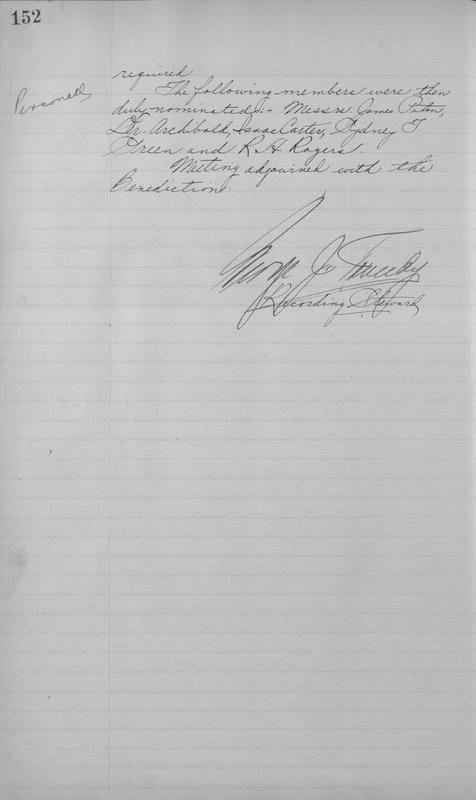 152
Personell
required.
The following members were then
duly nominated:- Messrs. James Paton,
Dr. Archibald, Isaac Carter, Sydney T.
Green and R. H. Rogers.
Meeting adjourned with the
Benediction.
Recording Steward